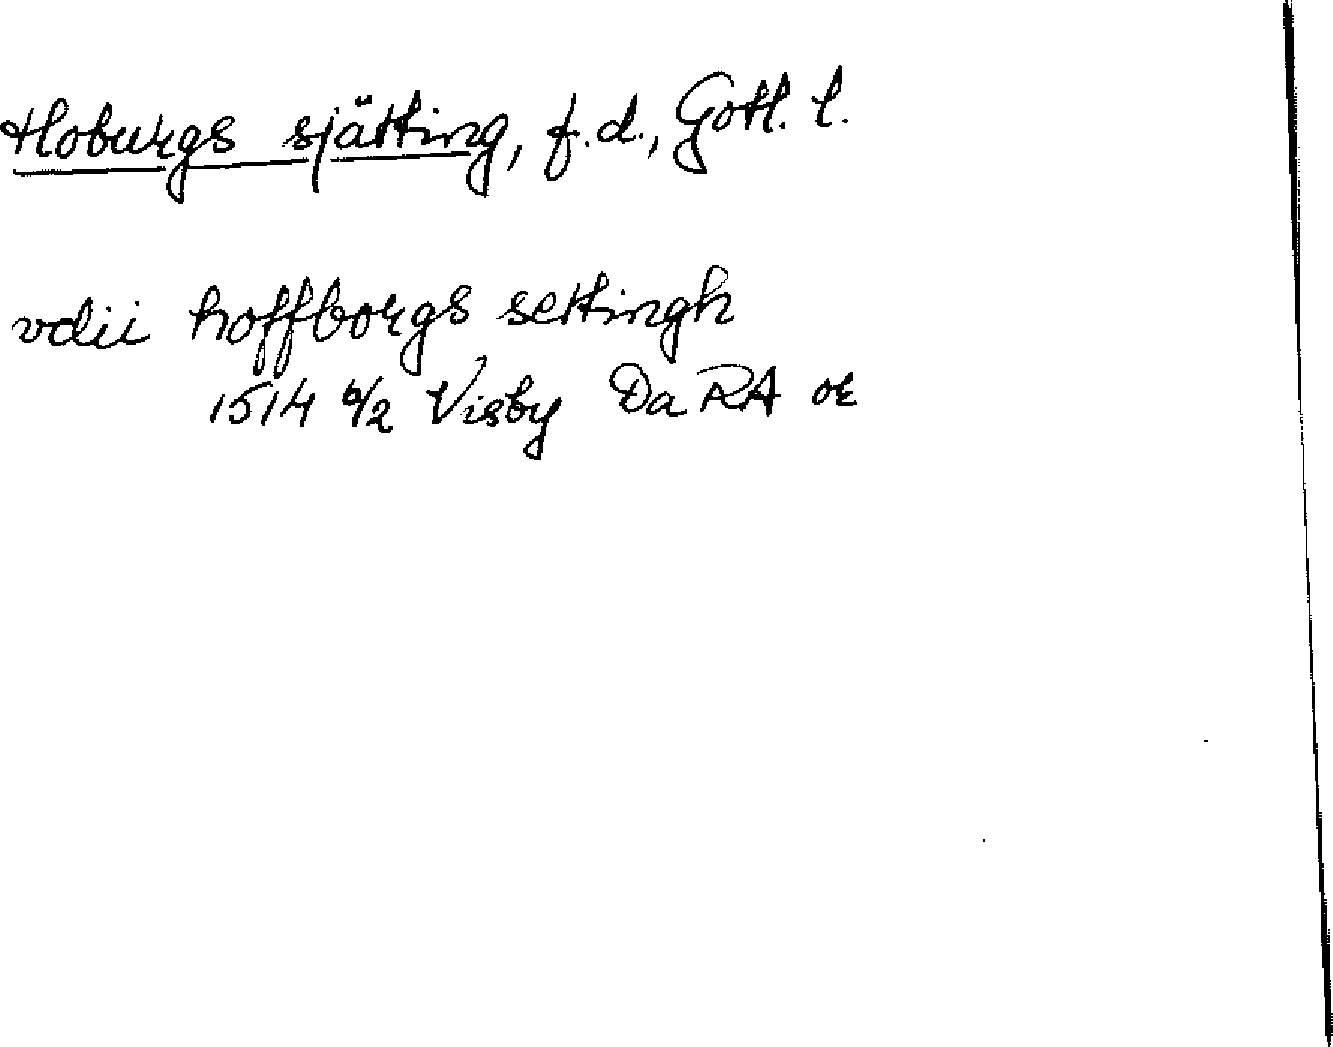 Hoburgs sjätting, f.d., Gotl. l.
vdii hoffborgs settingh
1514 6/2 Visby Da RA or